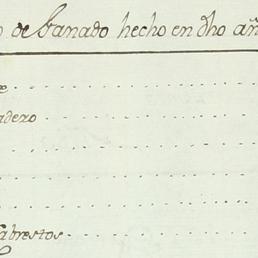 o de Ganado hecho en dho añ
adero
Cabrestos